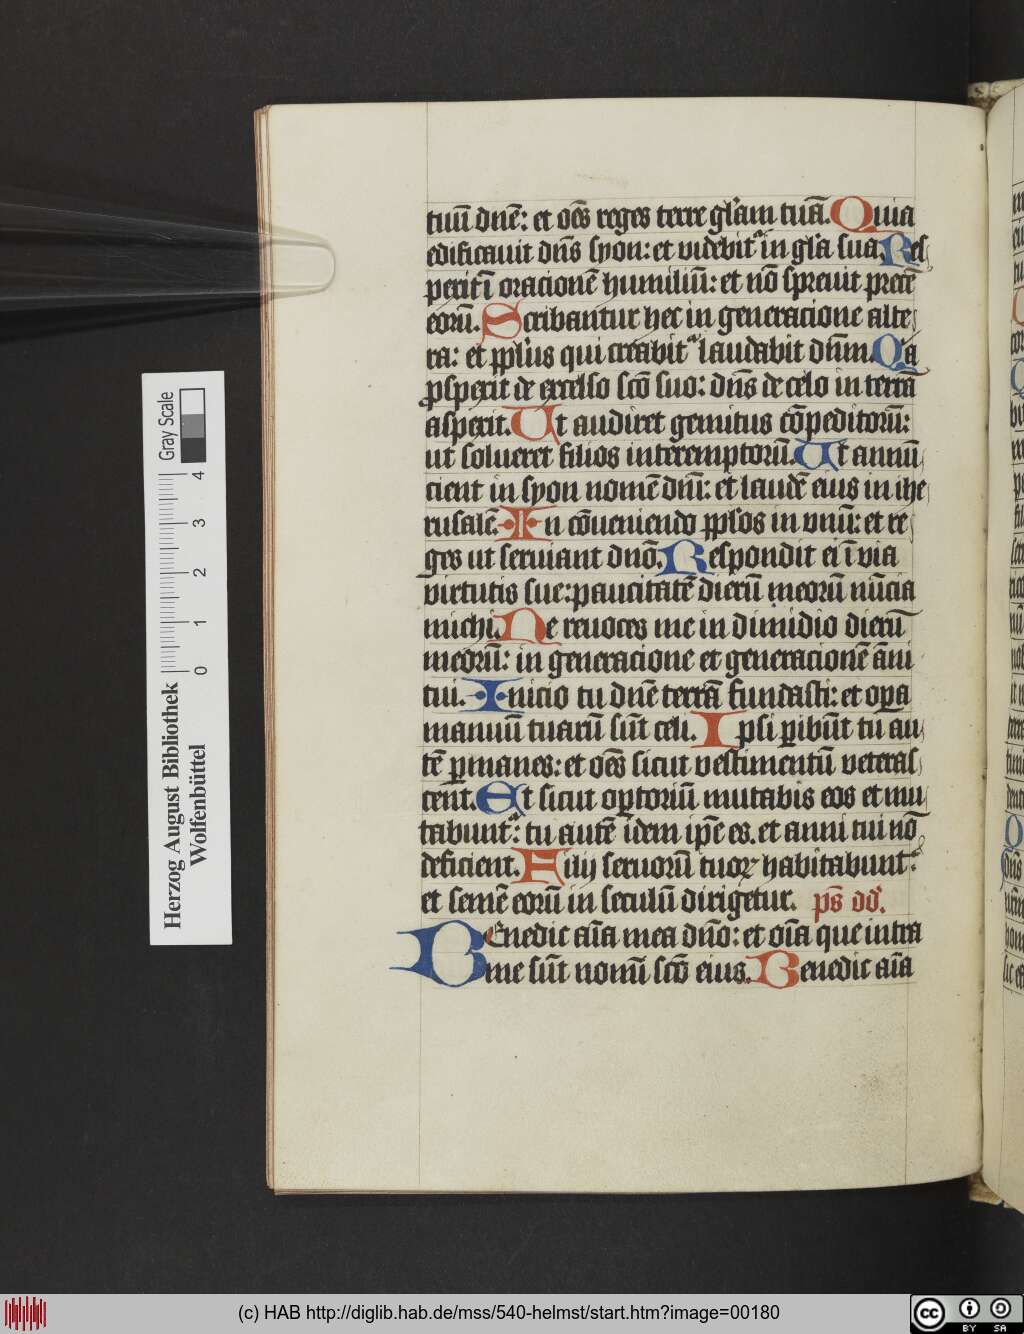 tuū dnē: et oēs reges terre gl'am tuā. Quia
edificauit dn̄s syon: et videbit' in gl'a sua. Res
pexit ī oracionē humiliū: et nō spreuit precē
eorū. Scribantur hec in generacione alte
ra: et ppl'us qui creabit' laudabit dn̄m. Qa
ꝓspexit de excelso scō suo: dn̄s de celo in terrā
aspexit. Ut audiret gemitus cōpeditorū:
ut solueret filios interemptorū. Ut annū
cient in syon nomē dnī: et laudē eius in ihe
rusalē. In cōueniendo ppl'os in vnū: et re
ges ut seruiant dnō. Respondit ei ī via
virtutis sue: paucitatē dierū meorū nūcia
michi. Ne reuoces me in dimidio dierū
meorū: in generacione et generacionē āni
tui. Inicio tu dnē terrā fundasti: et oꝑa
manuū tuarū sūt celi. Ipsi ꝑibūt tu au
tē ꝑmanes: et oēs sicut vestimentū veteras
cent. Et sicut oꝑtoriū mutabis eos et mu
tabunt': tu autē idem ip̄e es. et anni tui nō
deficient. Filij seruorū tuoꝝ habitabunt':
et semē eorū in seculū dirigetur. ps̄ dd'.
Benedic aīa mea dnō: et oīa que intra
me sūt nomī scō eius. Benedic aīa
Herzog August Bibliothek
Wolfenbüttel
Gray Scale
0 1 2 3 4
(c) HAB http://diglib.hab.de/mss/540-helmst/start.htm?image=00180
cc BY SA